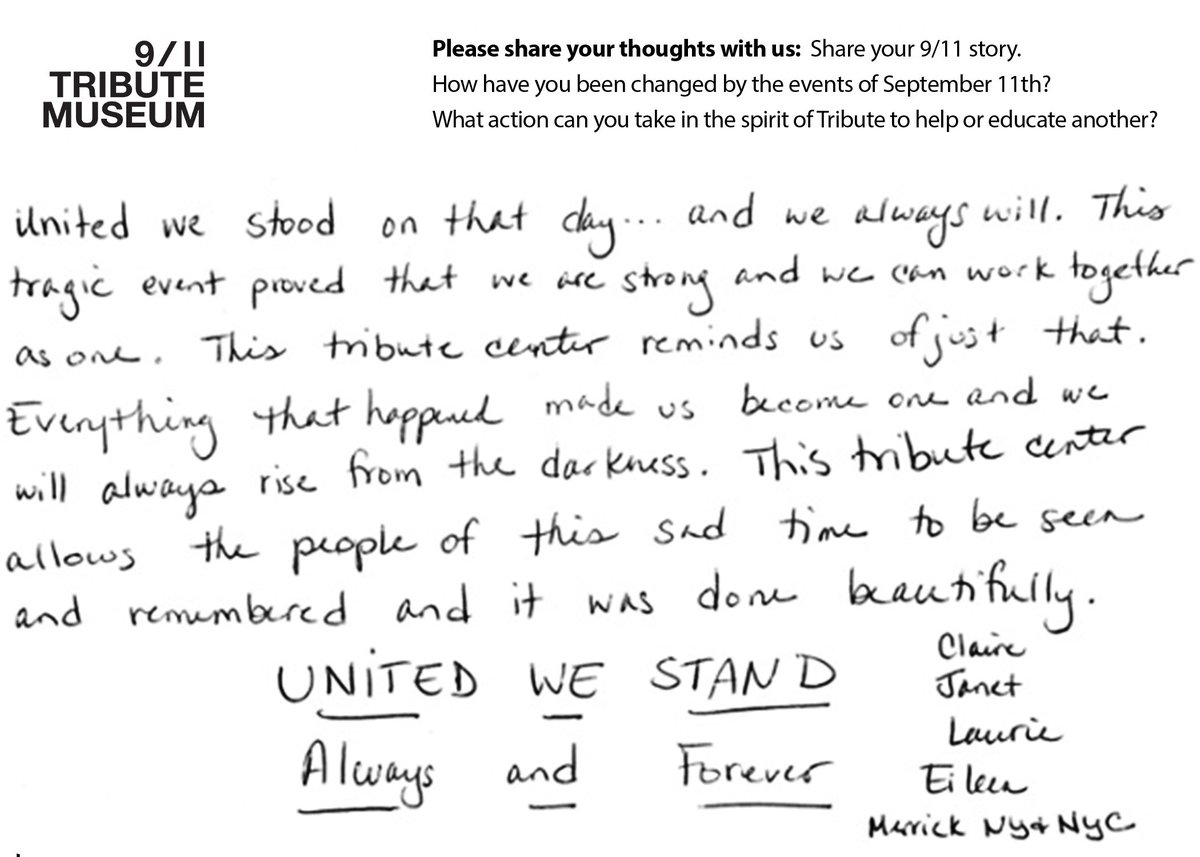 9/11
TRIBUTE
MUSEUM
Please share your thoughts with us: Share your 9/11 story.
How have you been changed by the events of September 11th?
What action can you take in the spirit of Tribute to help or educate another?
United we stood on that day... and we always will. This
tragic event proved that we are strong and we can work together
as one. This tribute center reminds us of just that.
Everything that happened made us become one and we
will always rise from the darkness. This tribute center
allows the people of this sad time to be seen
and remembered and it was done beautifully.
UNITED WE STAND
Always and Forever
Claire
Janet
Laurie
Eileen
Merrick NY & NYC